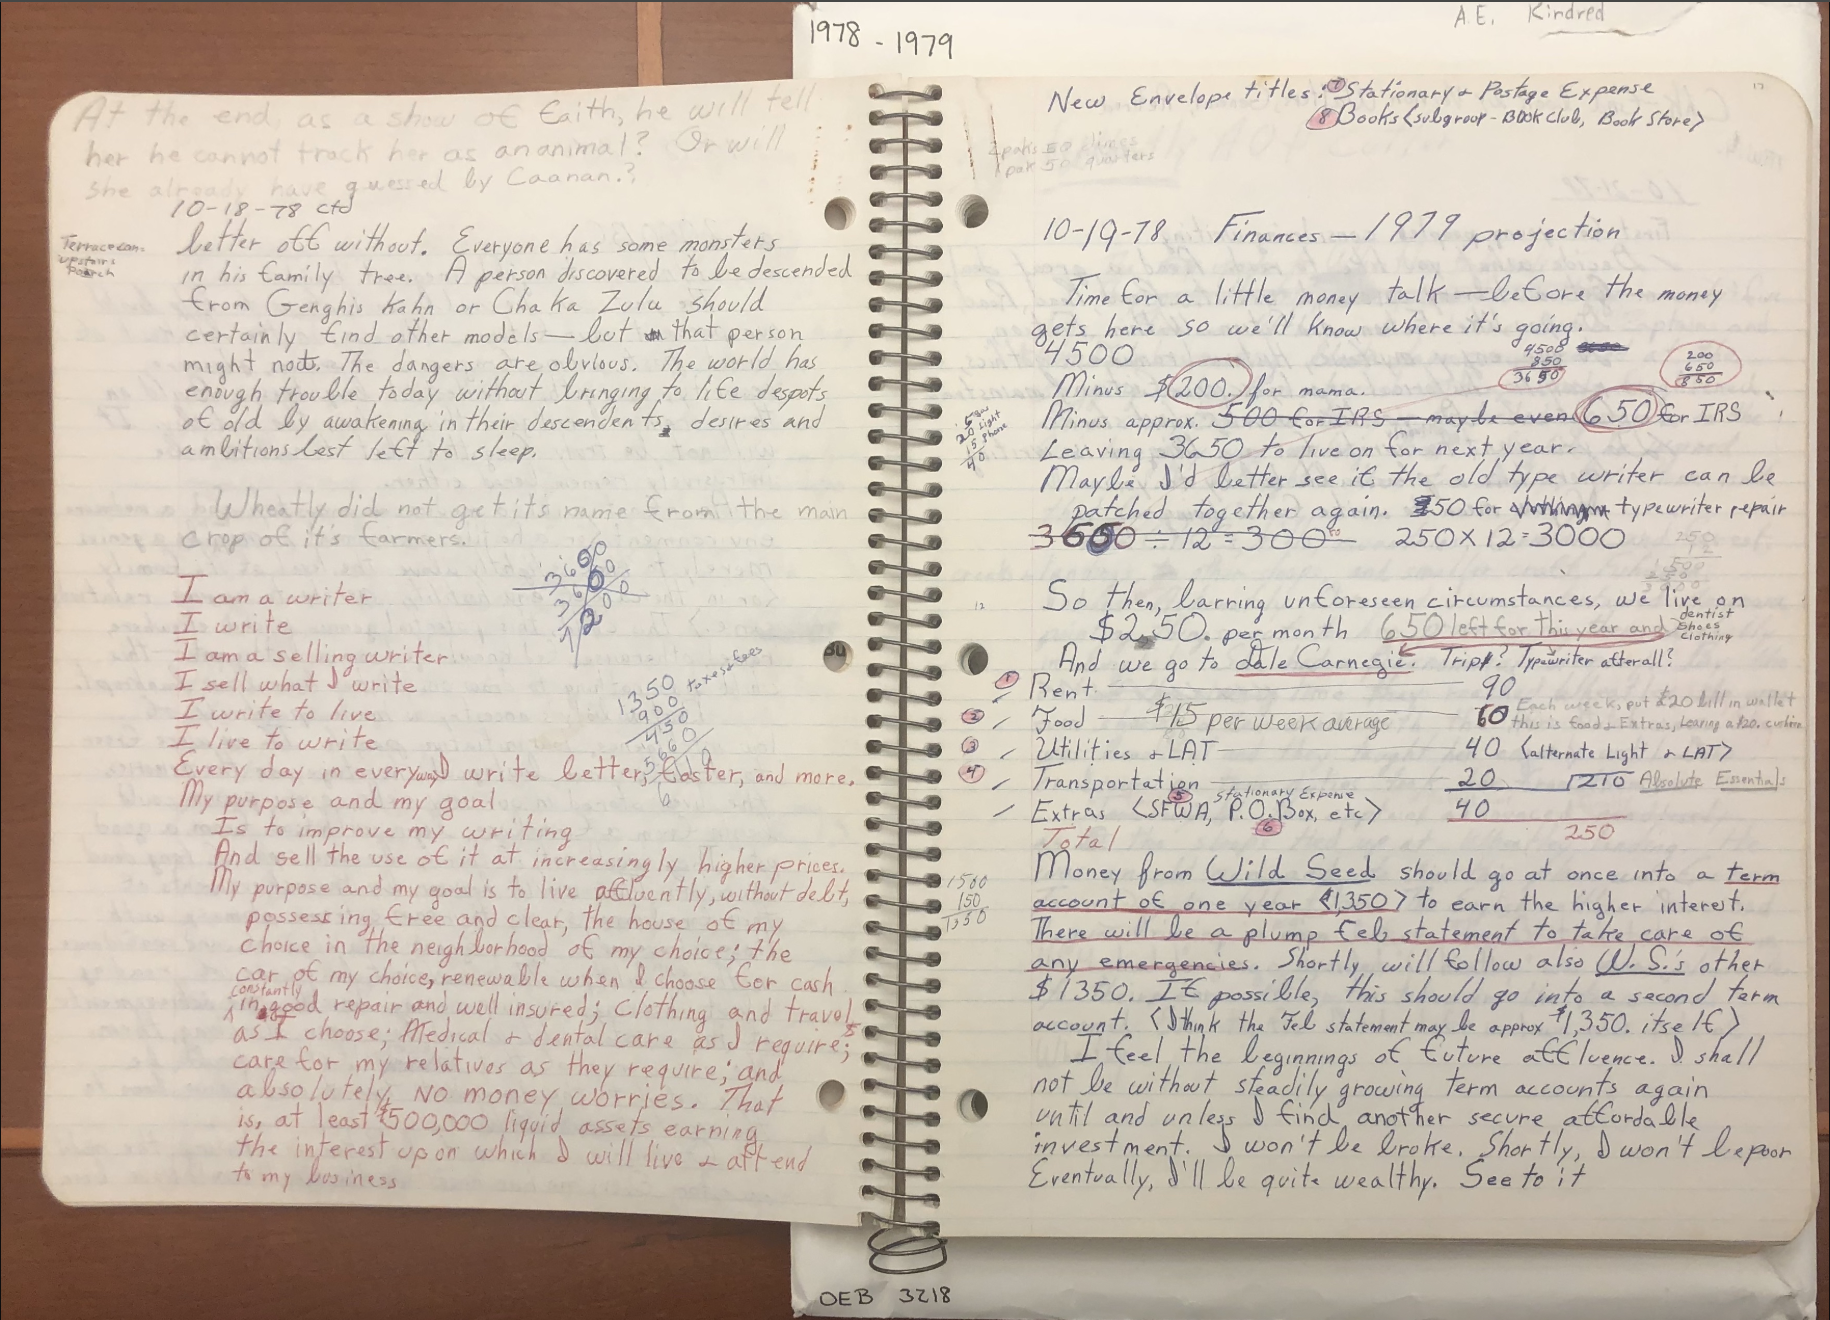 1978 - 1979
A.E. Kindred
At the end, as a show of faith, he will tell
her he cannot track her as an animal? Or will
she already have guessed by Caanan.?
10-18-78 ctd
Terrace
upstairs
Porch
better off without. Everyone has some monsters
in his family tree. A person discovered to be descended
from Genghis Kahn or Chaka Zulu should
certainly find other models — but that person
might not. The dangers are obvious. The world has
enough trouble today without bringing to life despots
of old by awakening in their descendents, desires and
ambitions best left to sleep.
Wheatly did not get its name from the main
crop of it's farmers.
3600
3600
7200
I am a writer
I write
I am a selling writer
I sell what I write
I write to live
I live to write
1350
900 taxes & fees
450
Every day in every way I write better, faster, and more.
My purpose and my goal
Is to improve my writing
And sell the use of it at increasingly higher prices.
My purpose and my goal is to live affluently, without debt,
possessing free and clear, the house of my
choice in the neighborhood of my choice; the
car of my choice, renewable when I choose for cash
constantly
in good repair and well insured; Clothing and travel
as I choose; Medical + dental care as I require;
care for my relatives as they require; and
absolutely NO money worries. That
is, at least $500,000 liquid assets earning
the interest upon which I will live + attend
to my business
New Envelope titles: 7 Stationary + Postage Expense
8 Books <subgroup - Book Club, Book Store>
2 paks 50 dimes
1 pak 50 quarters
10-19-78 Finances — 1979 projection
Time for a little money talk — before the money
gets here so we'll know where it's going.
4500
4500
850
3650
200
650
850
Minus $200. for mama.
Minus approx. 500 for IRS — maybe even 650 for IRS
20 Light
15 Phone
40
Leaving 3650 to live on for next year.
Maybe I'd better see if the old type writer can be
patched together again. $50 for typewriter repair
3600 ÷ 12 = 300 250 x 12 = 3000
250
12
500
250
3000
So then, barring unforeseen circumstances, we live on
$250. per month 650 left for this year and dentist
shoes
clothing
And we go to Dale Carnegie. Trip? Typewriter after all?
1 Rent 90
2 Food $15 per week average 60 Each week, put $20 bill in wallet
this is food + Extras, leaving a $20. cushion
3 Utilities + LAT 40 <alternate Light + LAT>
4 Transportation 20 210 Absolute Essentials
5 Stationary Expense
Extras <SFWA, P.O. Box, etc> 40
6
Total 250
1500
150
1350
Money from Wild Seed should go at once into a term
account of one year <1,350> to earn the higher interest.
There will be a plump Feb statement to take care of
any emergencies. Shortly will follow also W. S.'s other
$1350. If possible, this should go into a second term
account. <I think the Feb statement may be approx $1,350. itself>
I feel the beginnings of future affluence. I shall
not be without steadily growing term accounts again
until and unless I find another secure affordable
investment. I won't be broke. Shortly, I won't be poor
Eventually, I'll be quite wealthy. See to it
OEB 3218